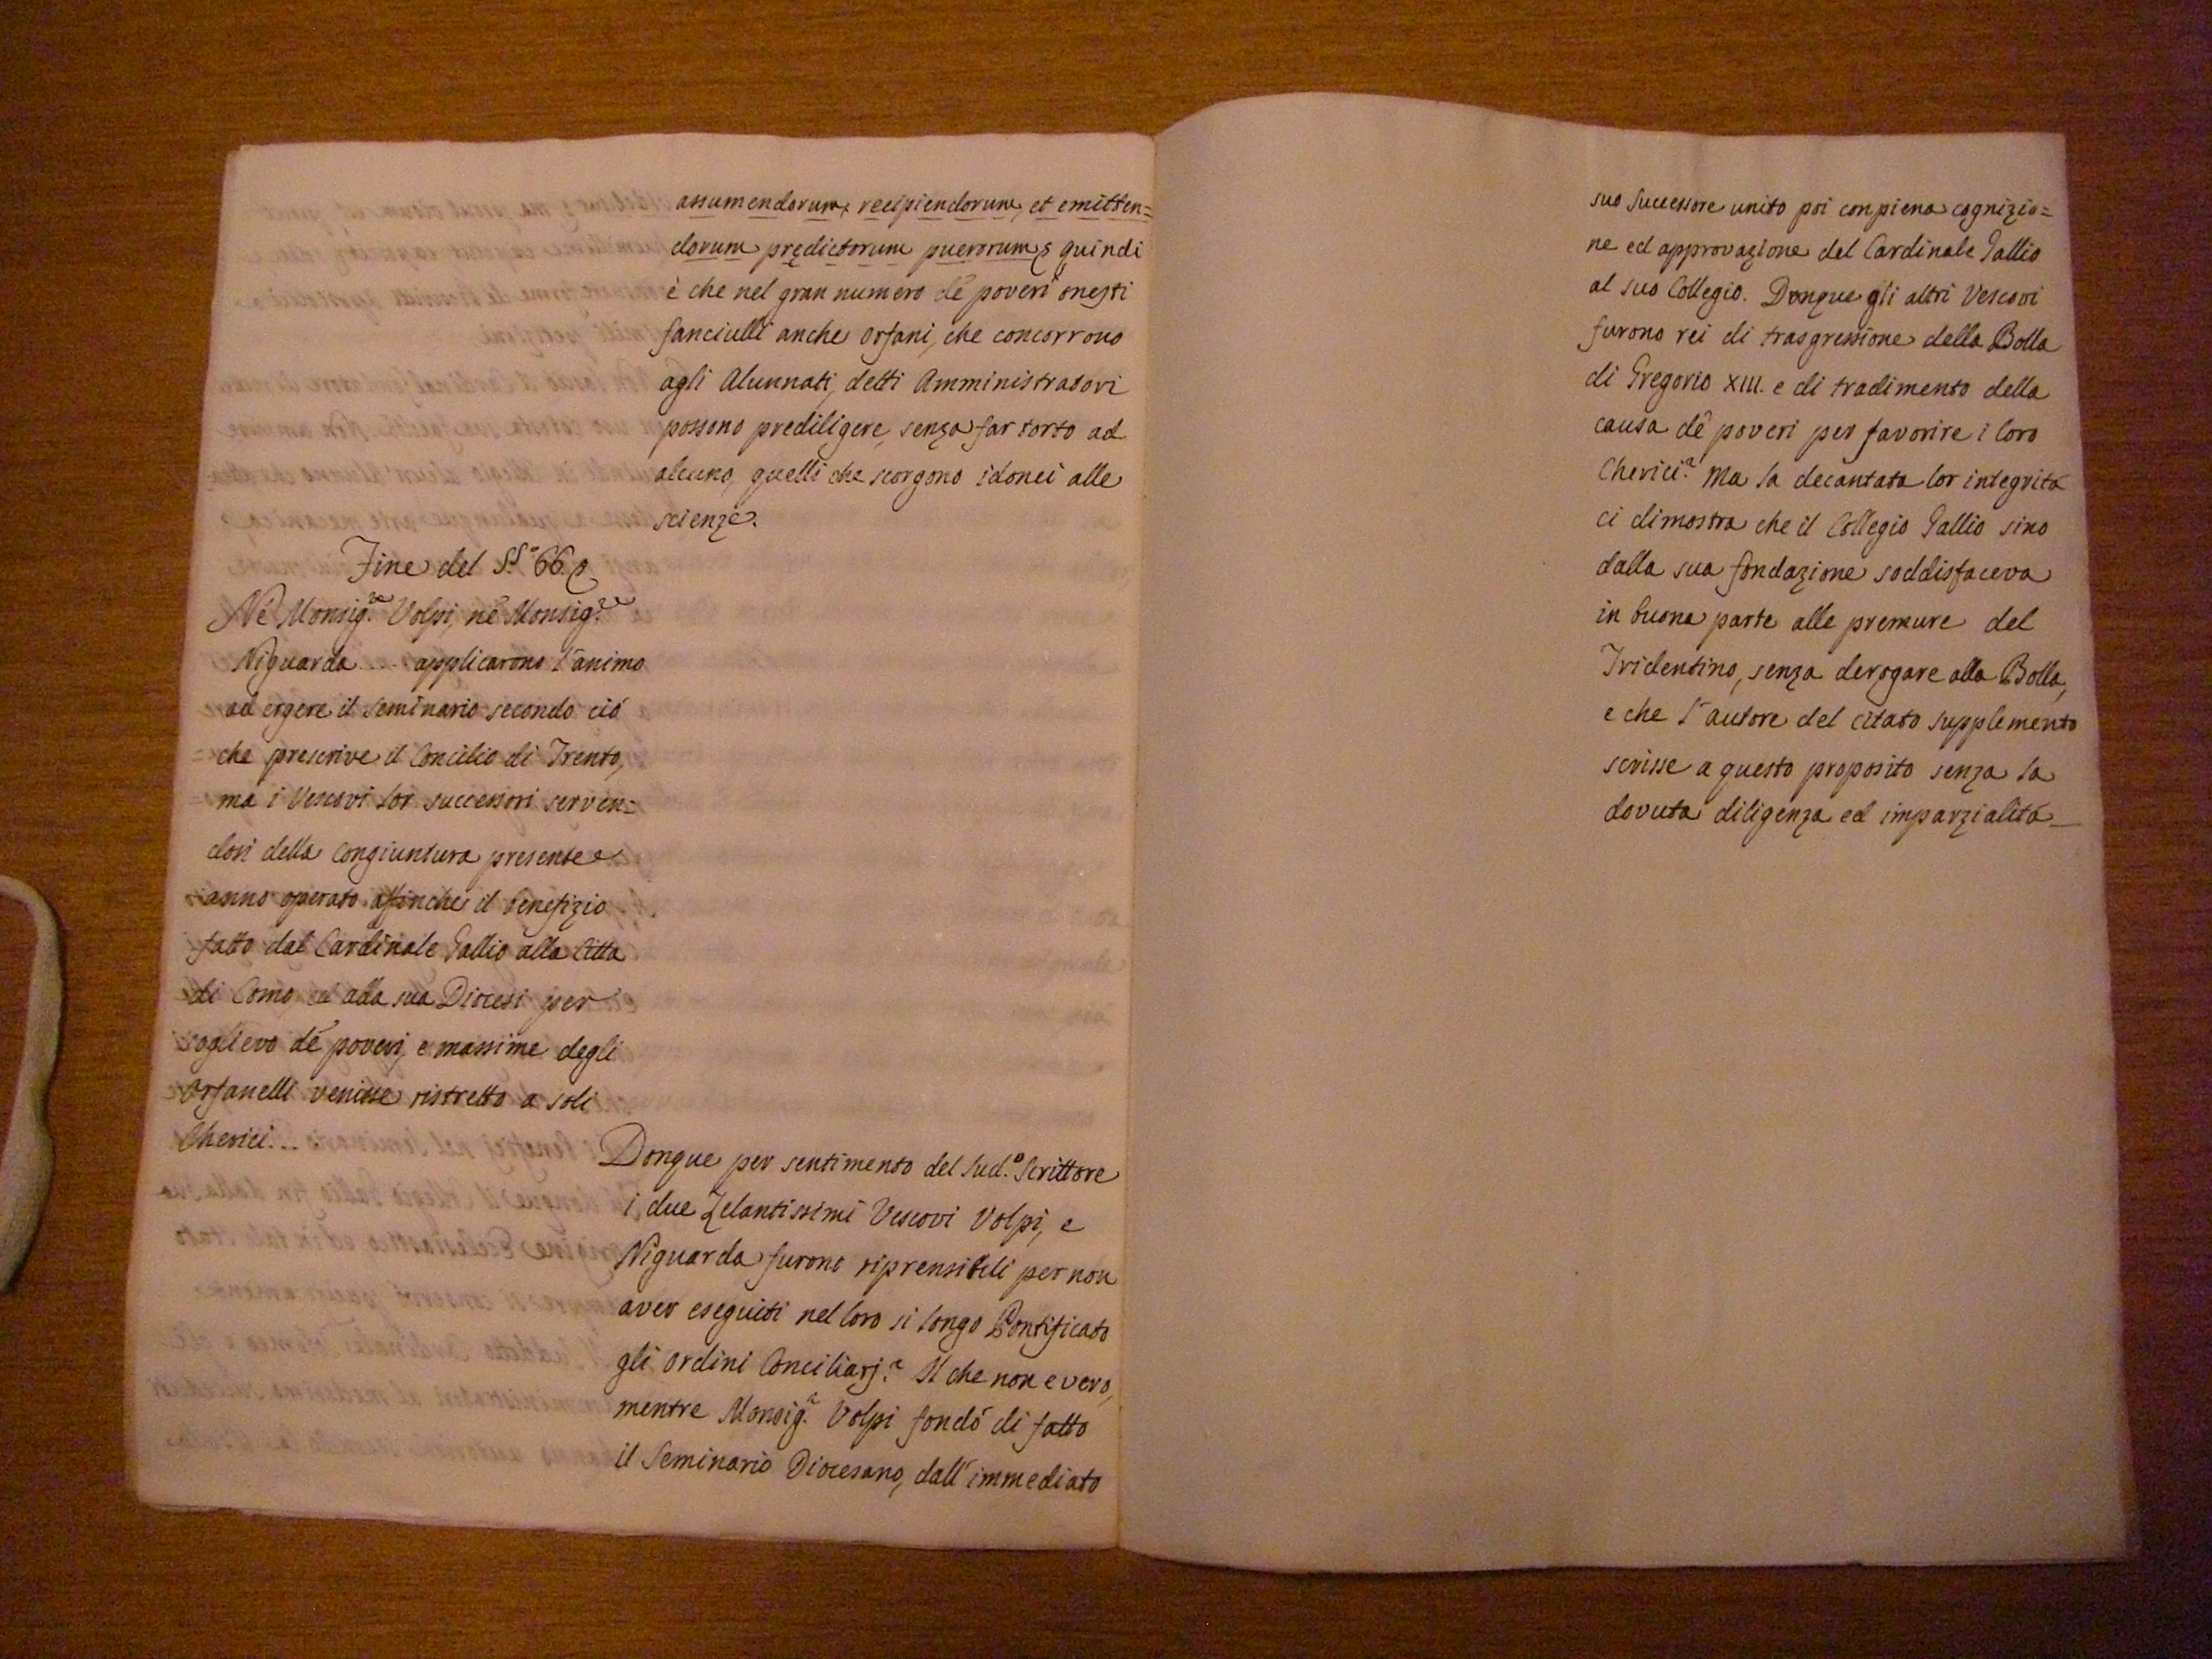 assumendorum, recipiendorum, et emitten=
dorum prędictorum puerorum; quindi
è che nel gran numero dè poveri onesti
fanciulli anche orfani, che concorrono
agli Alunnati, detti Amministratori
possono prediligere, senza far torto ad
alcuno, quelli che scorgono idonei alle
scienze.
Fine del §.° 66.
Nè Monsig.re Volpi, nè Monsig.re
Niguarda .... applicarono l'animo
ad ergere il seminario secondo ciò
che prescrive il Concilio di Trento,
ma i Vescovi lor successori serven=
dosi della congiuntura presente
anno operato affinche il benefizio
fatto dal Cardinale Gallio alla Citta
di Como, ed alla sua Diocesi per
soglievo dè poveri, e massime degli
Orfanelli venisse ristretto a soli
Cherici....
Donque per sentimento del Sud.° Scrittore
i due Zelantissimi Vescovi Volpi, e
Niguarda furono riprensibili per non
aver eseguiti nel loro si longo Pontificato
gli ordini Conciliarj? Il che non e vero,
mentre Monsig.r Volpi fondò di fatto
il Seminario Diocesano, dall'immediato
suo Successore unito poi con piena cognizio=
ne ed approvazione del Cardinale Gallio
al suo Collegio. Donque gli altri Vescovi
furono rei di trasgressione della Bolla
di Gregorio XIII. e di tradimento della
causa dè poveri per favorire i loro
Cherici? Ma la decantata lor integrità
ci dimostra che il Collegio Gallio sino
dalla sua fondazione soddisfaceva
in buona parte alle premure del
Tridentino, senza derogare alla Bolla,
e che l'autore del citato supplemento
scrisse a questo proposito senza la
dovuta diligenza ed imparzialità